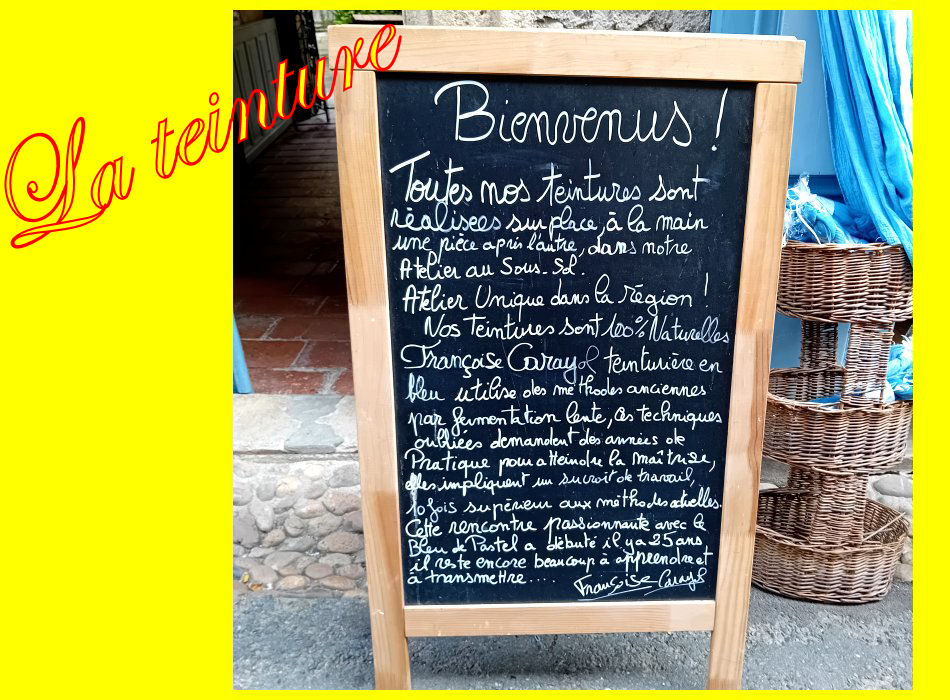 La teinture
Bienvenus !
Toutes nos teintures sont
réalisées sur place, à la main
une pièce après l'autre, dans notre
Atelier au Sous-Sol.
Atelier Unique dans la région !
Nos Teintures sont 100% Naturelles
Françoise Carayol teinturière en
bleu utilise des méthodes anciennes
par fermentation lente, ces techniques
oubliées demandent des années de
Pratique pour atteindre la maîtrise,
elles impliquent un surcroit de travail,
10 fois supérieur aux méthodes actuelles.
Cette rencontre passionnante avec le
Bleu de Pastel a débuté il y a 25 ans
il reste encore beaucoup à apprendre et
à transmettre....
Françoise Carayol